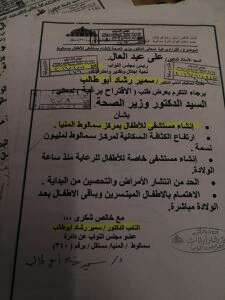 على عبد العال
رئيس مجلس النواب
برجاء التكرم بعرض طلب ( الاقتراح برغبة ) لمعالي
السيد الدكتور وزير الصحة
بشأن
إنشاء مستشفي للأطفال بمركز سمالوط المنيا .
ارتفاع الكثافة السكانية لمركز سمالوط لمليون
نسمة
إنشاء مستشفي خاصة للأطفال للرعاية منذ ساعة
الولادة.
الحد من انتشار الأمراض والتحصين من البداية .
الاهتمام بالأطفال المبتسرين وباقي الأطفال بعد
الولادة مباشرة.
مع خالص شكري ،،،
النائب الدكتور / سمير رشاد ابوطالب
عضو مجلس النواب عن دائرة
سمالوط / المنيا/ مستقل / رقم (٣٤٠)